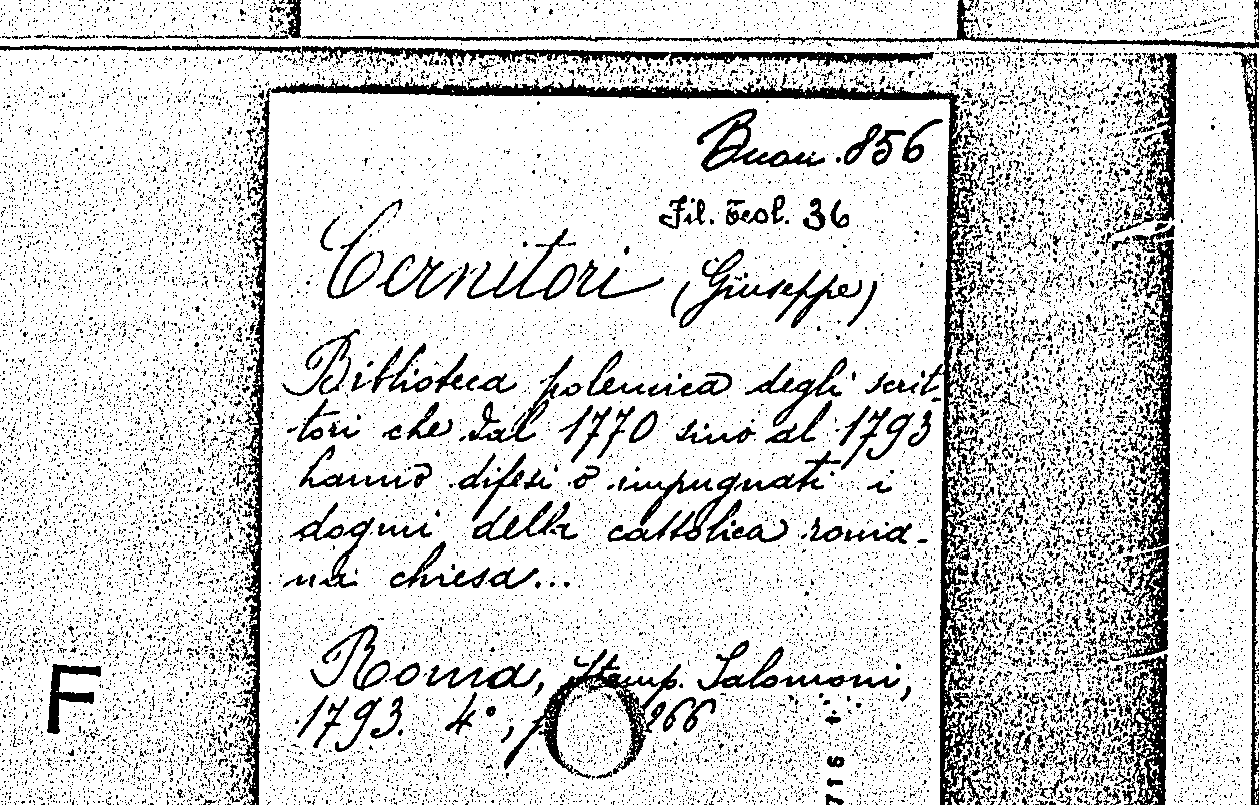 Buon. 856
Fil. Teol. 36
Cernitori (Giuseppe)
Biblioteca polemica degli scrit-
tori che dal 1770 sino al 1793
hanno difesi o impugnati i
dogmi della cattolica roma-
na chiesa...
Roma, Stamp. Salomoni,
1793. 4°, p 266
F
716